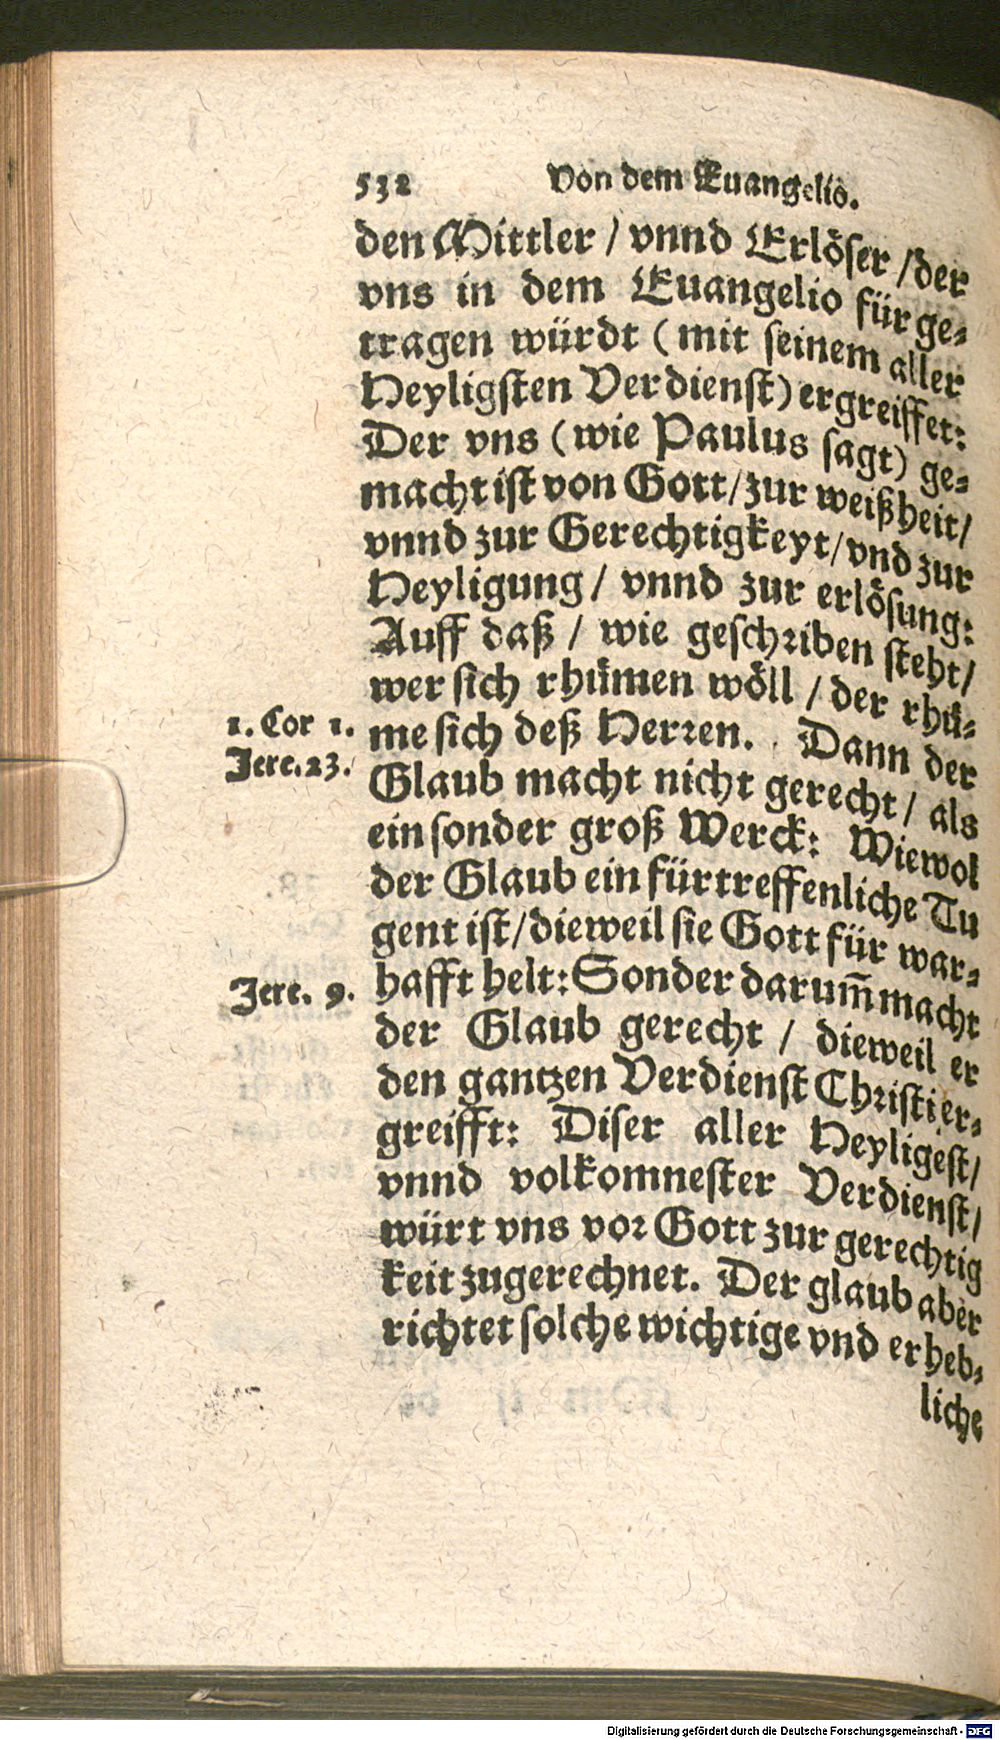 532 Von dem Euangelio.
den Mittler / vnnd Erlöser / der
vns in dem Euangelio fürge-
tragen würdt (mit seinem aller
Heyligsten Verdienst) ergreiffet:
Der vns (wie Paulus sagt) ge-
macht ist von Gott / zur weißheit /
vnnd zur Gerechtigkeyt / vnd zur
Heyligung / vnnd zur erlösung:
Auff daß / wie geschriben steht /
wer sich rhümen wöll / der rhü-
1. Cor 1. me sich deß Herren. Dann der
Jere. 23. Glaub macht nicht gerecht / als
ein sonder groß Werck: Wiewol
der Glaub ein fürtreffenliche Tu
gent ist / dieweil sie Gott für war-
Jere. 9. hafft helt: Sonder darum̃ macht
der Glaub gerecht / dieweil er
den gantzen Verdienst Christi er-
greifft: Diser aller Heyligest /
vnnd volkomnester Verdienst /
würt vns vor Gott zur gerechtig
keit zugerechnet. Der glaub aber
richtet solche wichtige vnd erheb-
liche
Digitalisierung gefördert durch die Deutsche Forschungsgemeinschaft - DFG